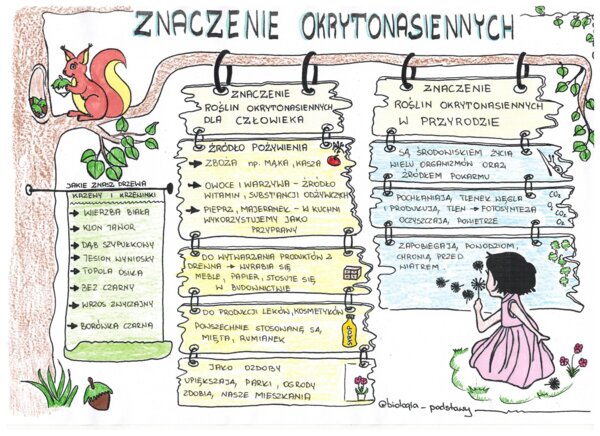 ZNACZENIE OKRYTONASIENNYCH
ZNACZENIE
ROŚLIN OKRYTONASIENNYCH
DLA CZŁOWIEKA
ŹRÓDŁO POŻYWIENIA
ZBOŻA np. MĄKA, KASZA
OWOCE I WARZYWA - ŹRÓDŁO
WITAMIN, SUBSTANCJI ODŻYWCZYCH
PIEPRZ, MAJERANEK - W KUCHNI
WYKORZYSTUJEMY JAKO
PRZYPRAWY
DO WYTWARZANIA PRODUKTÓW Z
DREWNA → WYRABIA SIĘ
MEBLE, PAPIER, STOSUJE SIĘ
W BUDOWNICTWIE
DO PRODUKCJI LEKÓW, KOSMETYKÓW
POWSZECHNIE STOSOWANE SĄ,
MIĘTA, RUMIANEK
JAKO OZDOBY
UPIĘKSZAJĄ, PARKI, OGRODY
ZDOBIĄ, NASZE MIESZKANIA
ZNACZENIE
ROŚLIN OKRYTONASIENNYCH
W PRZYRODZIE
SĄ ŚRODOWISKIEM ŻYCIA
WIELU ORGANIZMÓW ORAZ
ŹRÓDŁEM POKARMU
POCHŁANIAJĄ TLENEK WĘGLA
I PRODUKUJĄ, TLEN → FOTOSYNTEZA
OCZYSZCZAJĄ, POWIETRZE
CO₂
O₂
CO₂
ZAPOBIEGAJĄ, POWODZIOM,
CHRONIĄ PRZED
WIATREM.
JAKIE ZNASZ DRZEWA
KRZEWY I KRZEWINKI
WIERZBA BIAŁA
KLON JAWOR
DĄB SZYPUŁKOWY
JESION WYNIOSŁY
TOPOLA OSIKA
BEZ CZARNY
WRZOS ZWYCZAJNY
BORÓWKA CZARNA
@biologia_podstawy